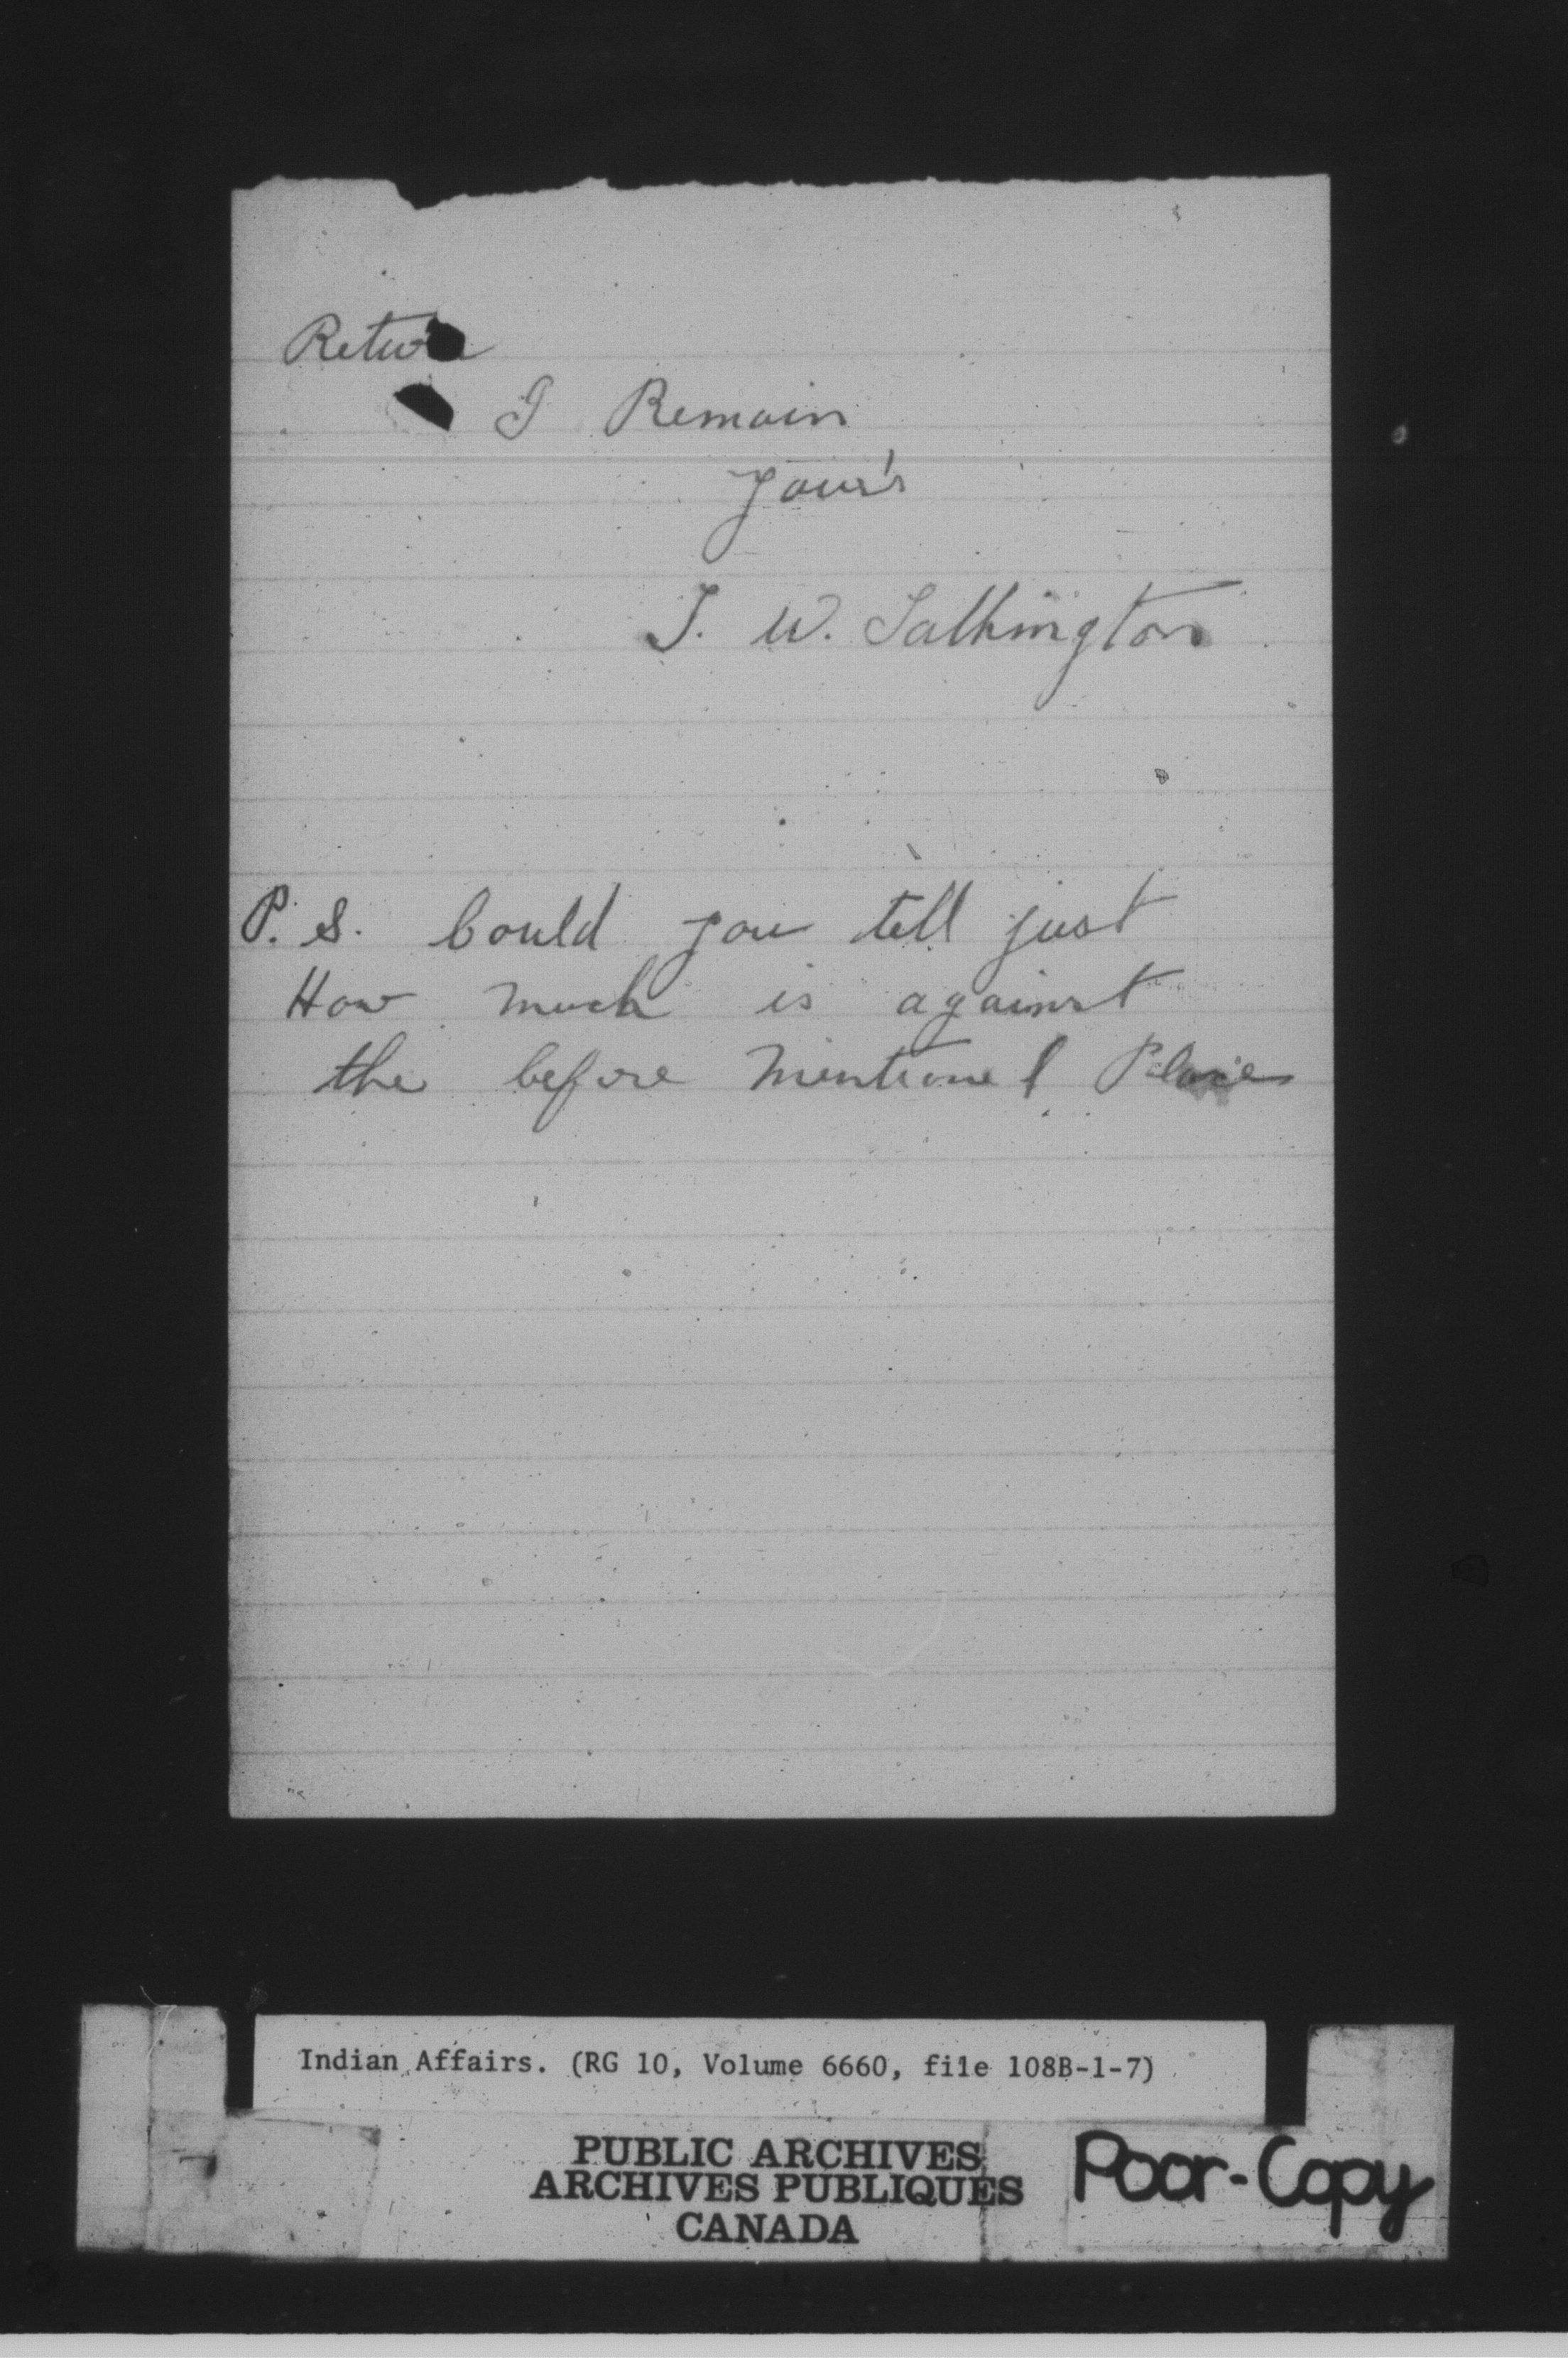 Return
I Remain
Your's
J. W. Salkington
P. S. Could you tell just
How much is against
the before Mentioned Place
Indian Affairs. (RG 10, Volume 6660, file 108B-1-7)
PUBLIC ARCHIVES
ARCHIVES PUBLIQUES
CANADA
Poor-Copy